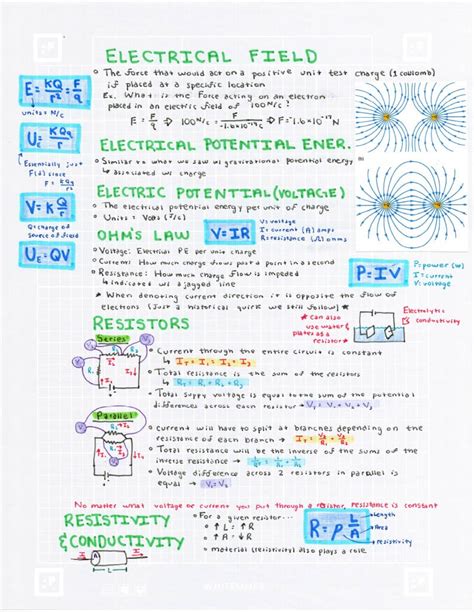 ELECTRICAL FIELD
E = kQ/r² = F/q
units = N/C
• The force that would act on a positive unit test charge (1 coulomb)
if placed at a specific location
Ex. What is the Force acting on an electron
placed in an electric field of 100N/C?
E = F/q → 100N/C = F/-1.6×10⁻¹⁹C → F = -1.6×10⁻¹⁷N
UE = kQq/r
Essentially just
F(d) since
F = kQq/r²
ELECTRICAL POTENTIAL ENER.
• Similar to what we saw w/ gravitational potential energy
↳ associated w/ charge
ELECTRIC POTENTIAL (VOLTAGE)
V = kQ/r
Q = charge of
source of field
• The electrical potential energy per unit of charge
• Units = Volts (J/C)
UE = QV
OHM'S LAW
V = IR
V: voltage
I = current (A) amps
R = resistance (Ω) ohms
• Voltage: Electrical PE per unit charge
• Current: How much charge flows past a point in a second
• Resistance: How much charge flow is impeded
↳ indicated w/ a jagged line
P = IV
P: power (w)
I = current
V: voltage
* When denoting current direction it is opposite the flow of
electrons (Just a historical quirk we still follow)
* Can also
use water &
plates as a
resistor
Electrolytic
conductivity
RESISTORS
Series
• Current through the entire circuit is constant
↳ IT = I1 = I2 = I3
• Total resistance is the sum of the resistors
↳ RT = R1 + R2 + R3
• Total supply voltage is equal to the sum of the potential
differences across each resistor ↳ VT = V1 + V2 + V3
Parallel
• Current will have to split at branches depending on the
resistance of each branch
• Total resistance will be the inverse of the sums of the
inverse resistance
• Voltage difference across 2 resistors in parallel is
equal → V1 = V2
No matter what voltage or current you put through a resistor, resistance is constant
RESISTIVITY
& CONDUCTIVITY
• For a given resistor...
• ↑ L = ↑ R
• ↑ A = ↓ R
• material (resistivity) also plays a role
R = ρ L/A
length
Area
resistivity